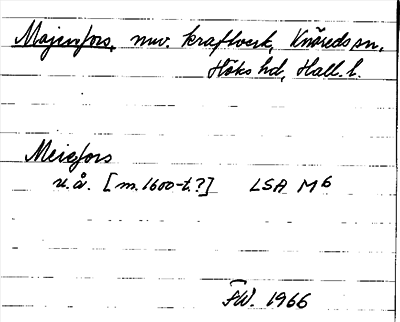 Majenfors, nuv. kraftverk, Knäreds sn,
Höks hd, Hall. l.
Meiefors
u.å. [m. 1600-t.?] LSA M6
FW. 1966